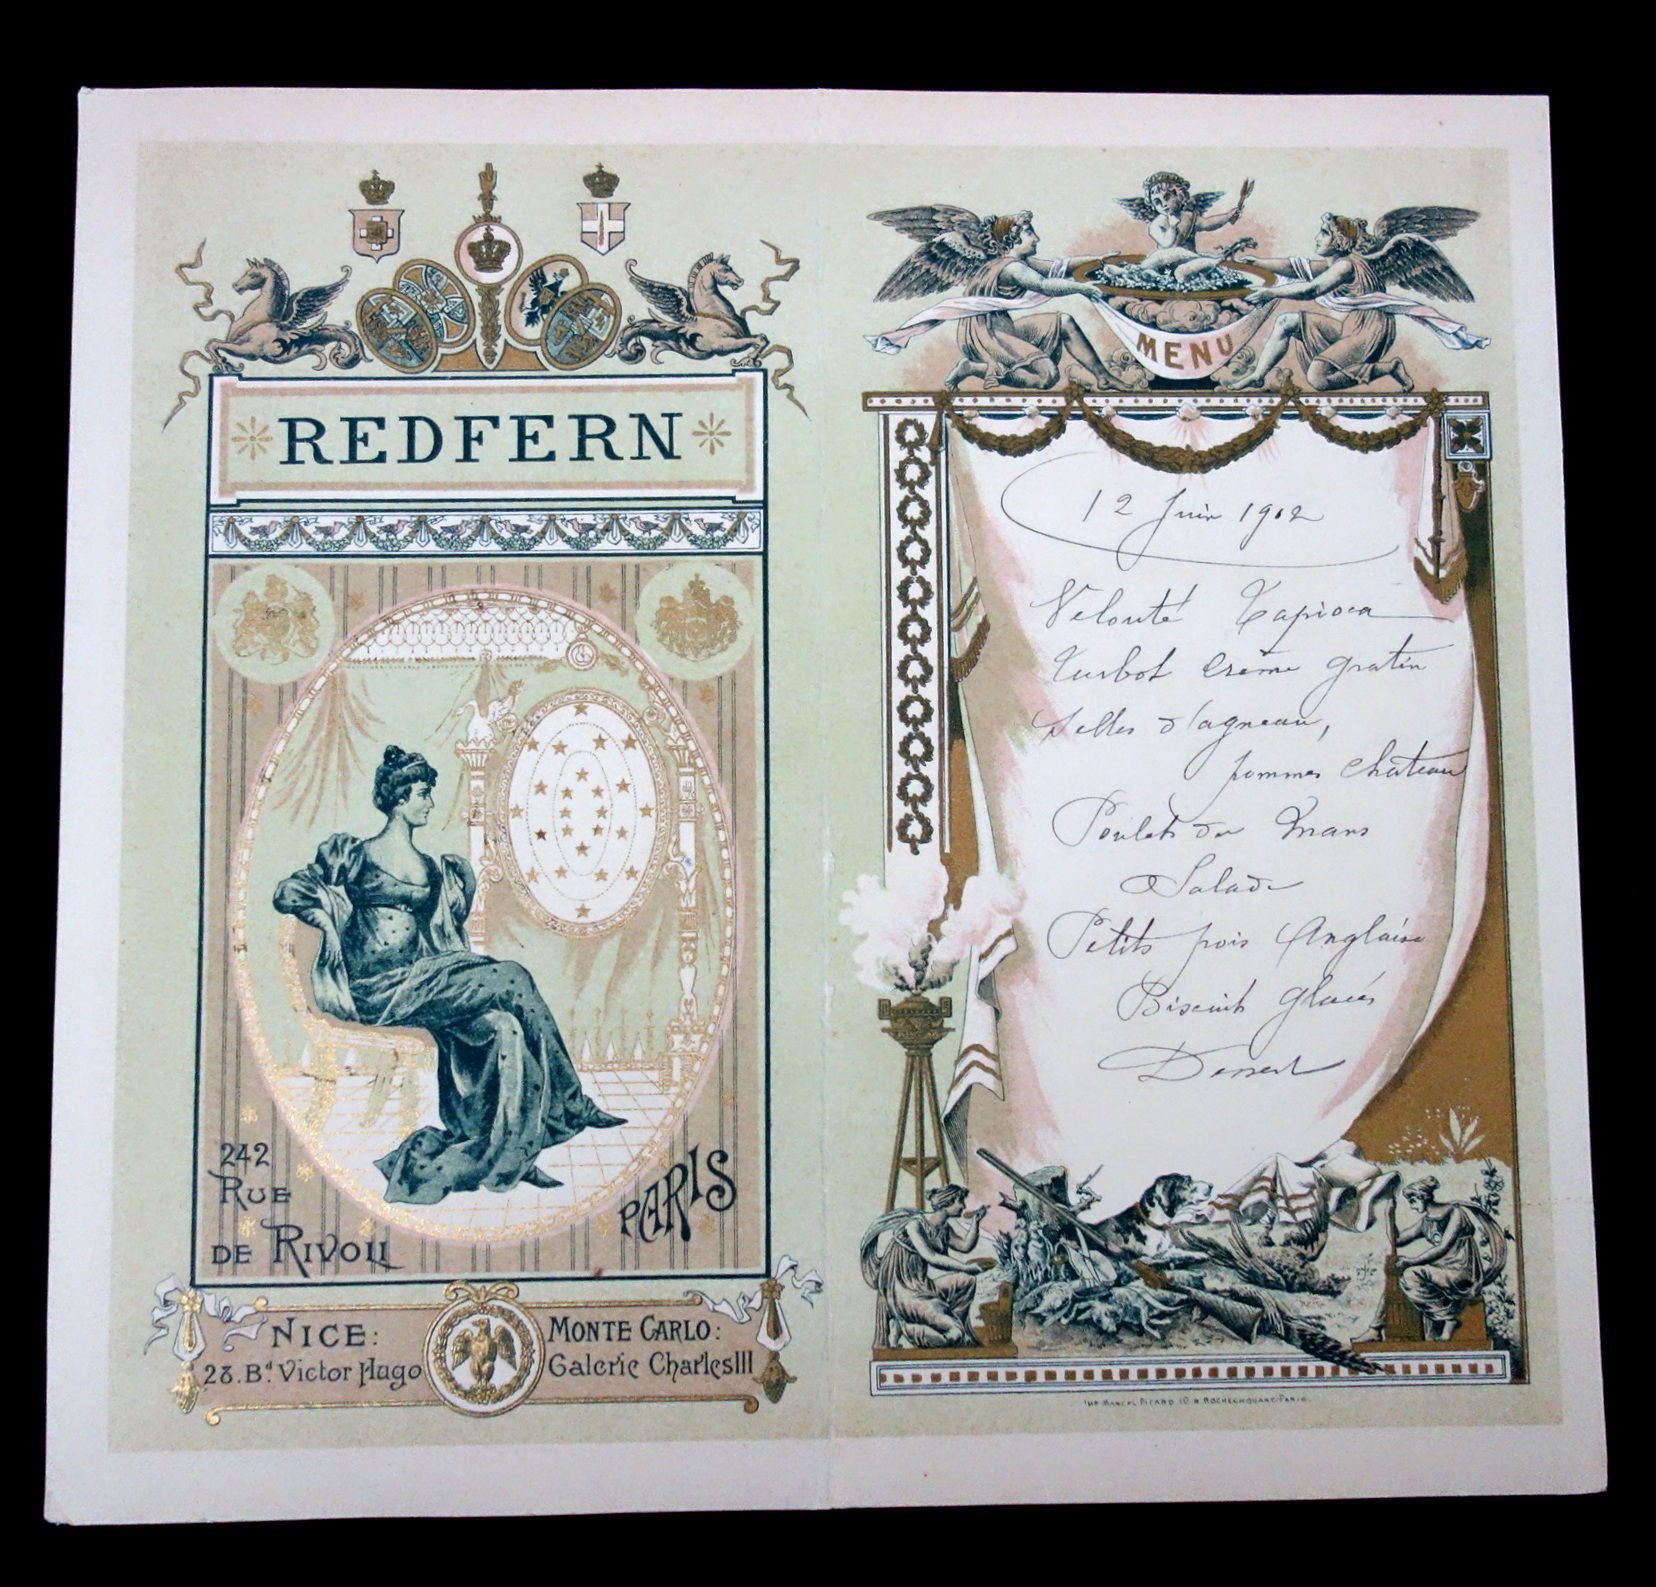 REDFERN
242
RUE
DE RIVOLI
PARIS
NICE:
28.Bd. Victor Hugo
MONTE CARLO:
Galerie Charles III
MENU
12 Juin 1902
Velouté Tapioca
Turbot Crème gratin
Selles d'agneau,
pommes chateau
Poulets du Mans
Salade
Petits pois Anglaise
Biscuits Glacés
Dessert
IMP. MARCEL PICARD 10 R ROCHECHOUART. PARIS.